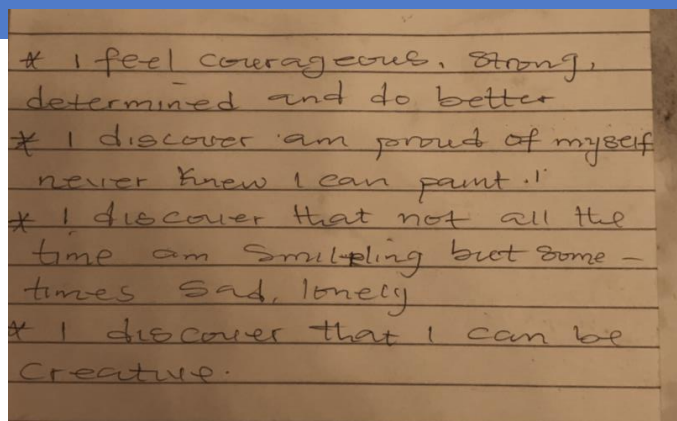 * I feel courageous, strong,
determined and do better
* I discover am proud of myself
never knew I can paint.!
* I discover that not all the
time am smiling but some-
times sad, lonely
* I discover that I can be
creative.